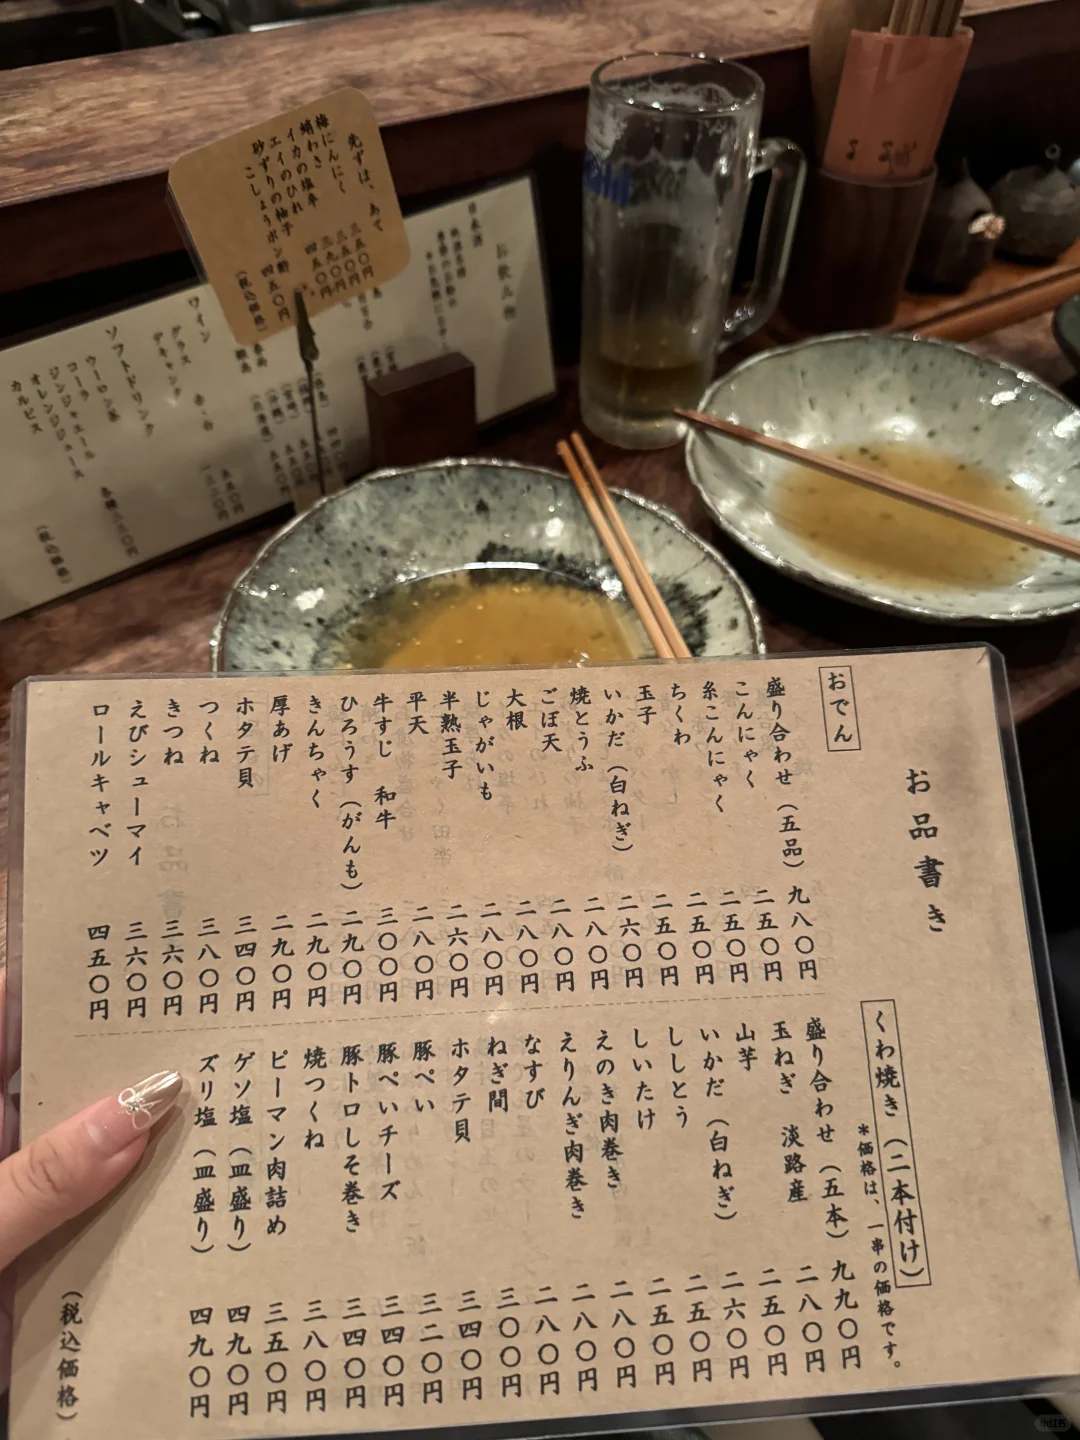 お品書き
おでん
盛り合わせ（五品） 九八〇円
こんにゃく 二五〇円
糸こんにゃく 二五〇円
ちくわ 二五〇円
玉子 二五〇円
いかだ（白ねぎ） 二六〇円
焼とうふ 二八〇円
ごぼ天 二八〇円
大根 二八〇円
じゃがいも 二八〇円
半熟玉子 二六〇円
平天 二八〇円
牛すじ 和牛 三〇〇円
ひろうす（がんも） 二九〇円
きんちゃく 二九〇円
厚あげ 二九〇円
ホタテ貝 三四〇円
つくね 三八〇円
きつね 三六〇円
えびシューマイ 三六〇円
ロールキャベツ 四五〇円
くわ焼き（二本付け）
＊価格は、一串の価格です。
盛り合わせ（五本） 九九〇円
玉ねぎ 淡路産 二八〇円
山芋 二五〇円
いかだ（白ねぎ） 二六〇円
ししとう 二五〇円
しいたけ 二五〇円
えのき肉巻き 二八〇円
えりんぎ肉巻き 二八〇円
なすび 二八〇円
ねぎ間 三〇〇円
ホタテ貝 三四〇円
豚ぺい 三二〇円
豚ぺいチーズ 三四〇円
豚トロしそ巻き 三四〇円
焼つくね 三八〇円
ピーマン肉詰め 三五〇円
ゲソ塩（皿盛り） 四九〇円
ズリ塩（皿盛り） 四九〇円
（税込価格）
先ずは、あて
梅にんにく 三五〇円
蛸わさ 三五〇円
イカの塩辛 三九〇円
エイのひれ 四五〇円
砂ずりの柚子
こしょうポン酢 四五〇円
（税込価格）
お飲み物
日本酒
ワイン
グラス 赤・白
デキャンタ
ソフトドリンク
ウーロン茶
コーラ
ジンジャエール
オレンジジュース
カルピス
（税込価格）
小红书